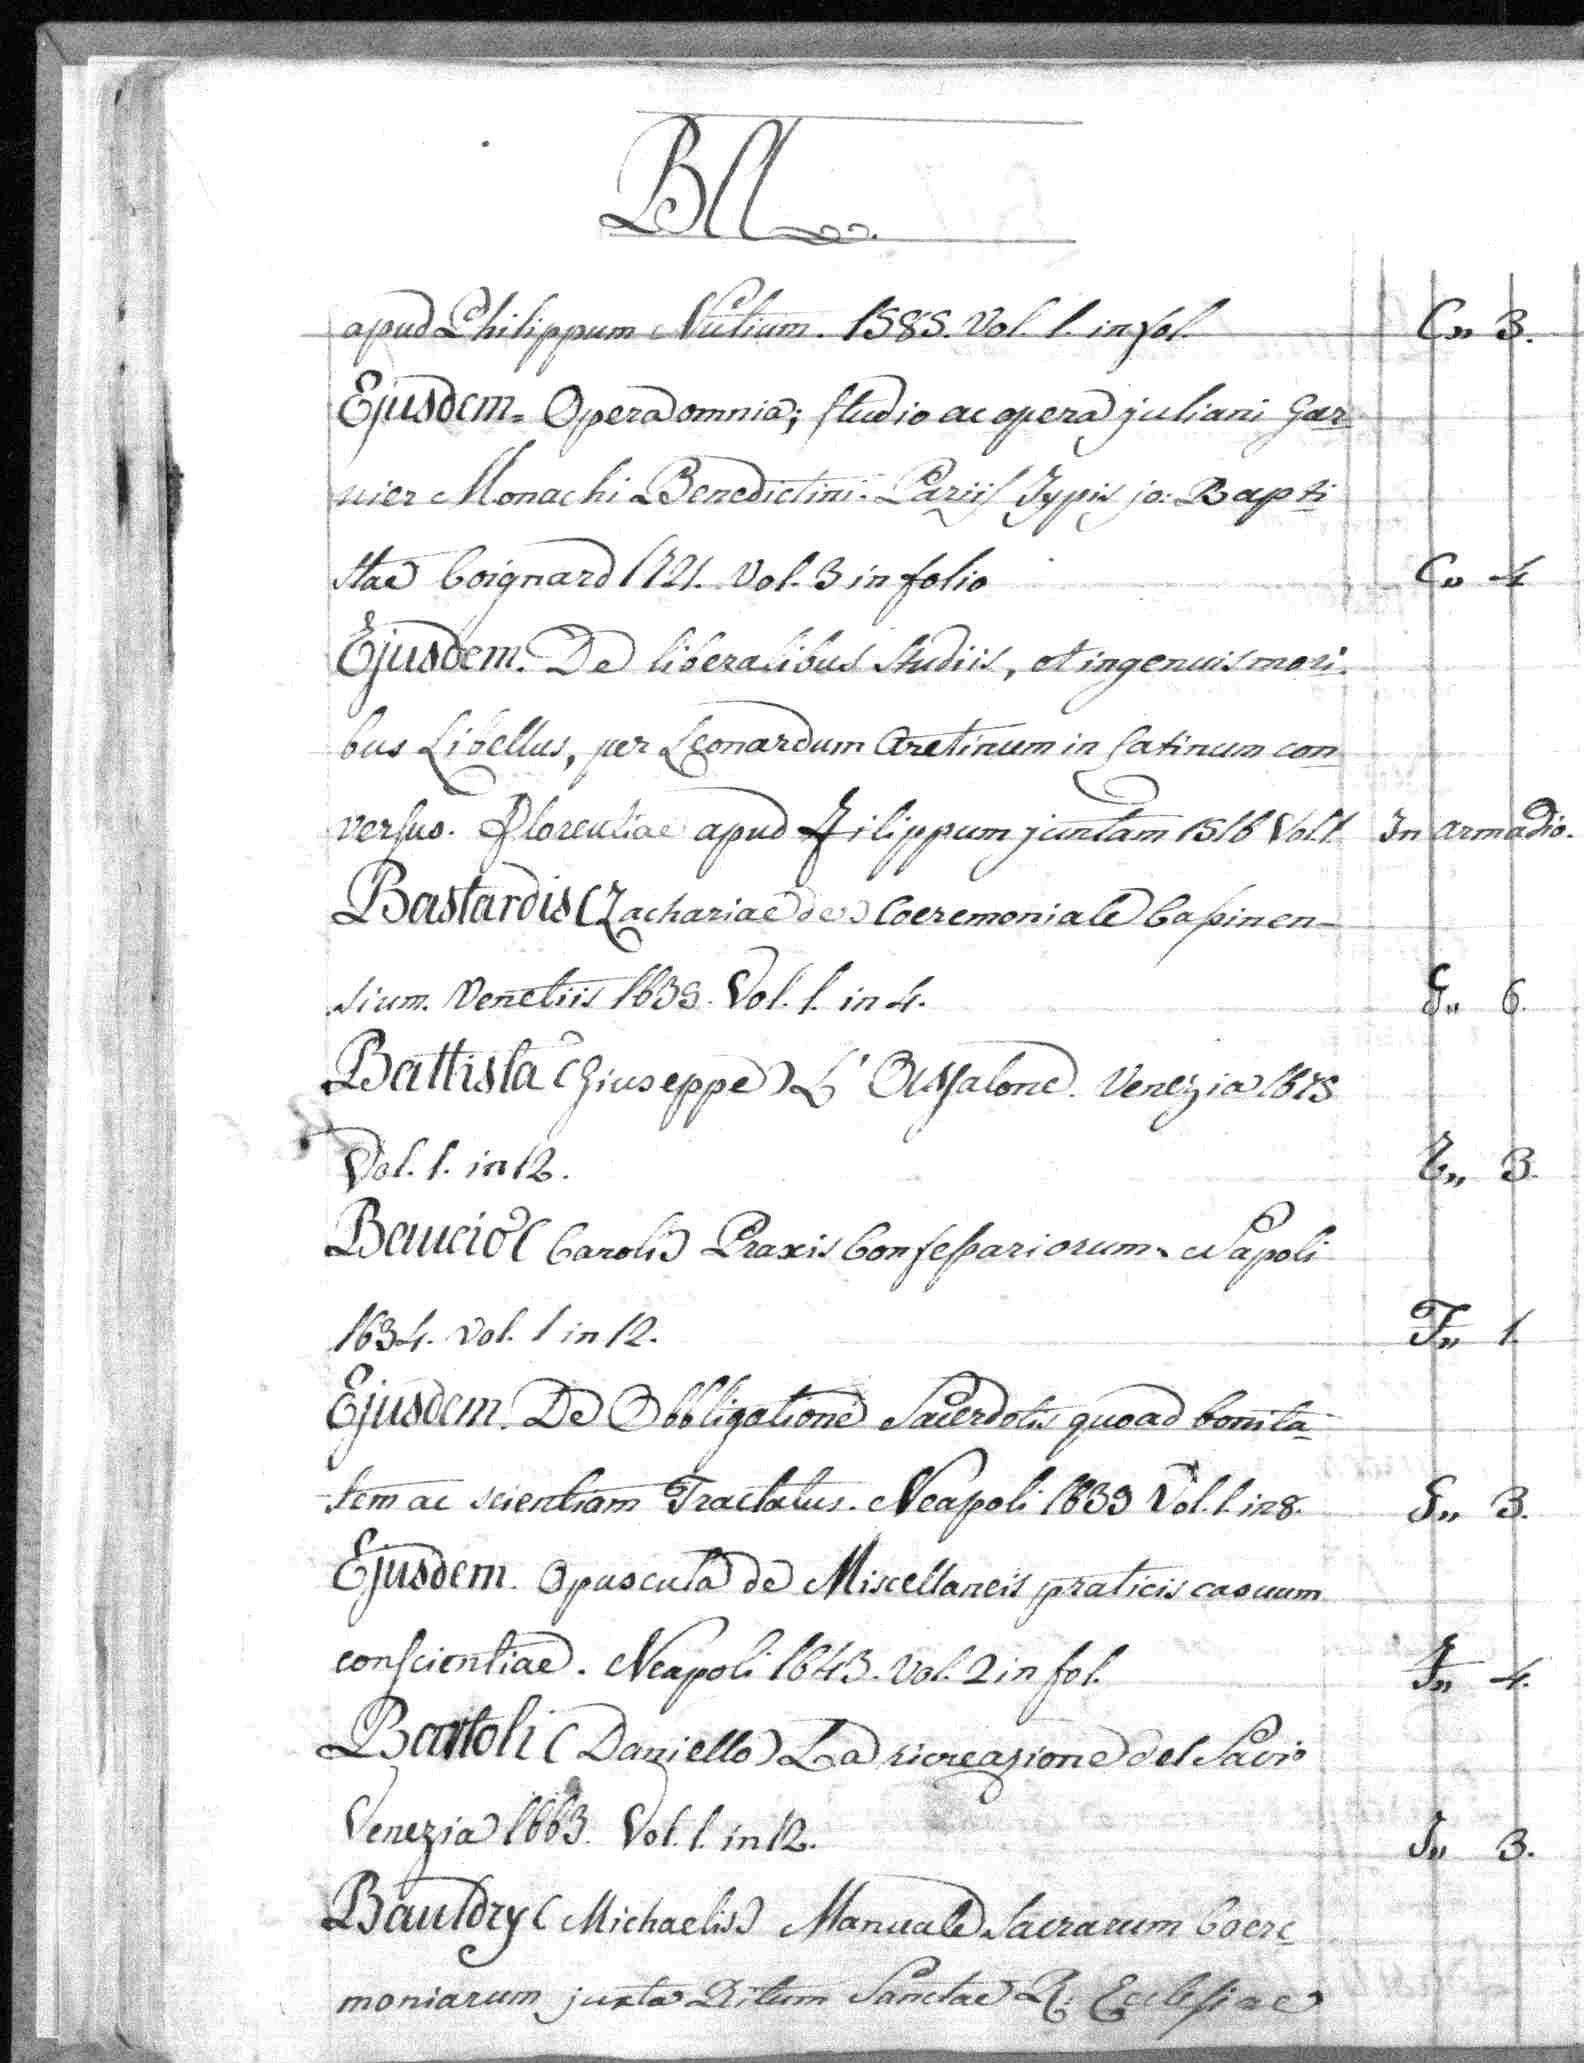 BA
apud Philippum Nutium. 1585. Vol. 1. in fol. C,, 3.
Ejusdem. Opera omnia; studio ac opera juliani Gar
nier Monachi Benedictini. Pariis Typis jo: Bapti
stae Coignard 1721. Vol. 3 in folio C,, 4
Ejusdem. De liberalibus studiis, et ingenuis mori
bus Libellus, per Leonardum Aretinum in Latinum con
versus. Florentiae apud Filippum juntam 1516 Vol. 1. In armadio.
Bastardis (Zachariae de) Coeremoniale Cassinen-
sium. Venetiis 1639. Vol. 1. in 4. G,, 6.
Battista (Giuseppe) L' Assalone. Venezia 1675
Vol. 1. in 12. 3.
Baucio (Caroli) Praxis Confessariorum. Napoli
1634. Vol. 1 in 12. T,, 1.
Ejusdem. De Obbligatione Sacerdotis quoad bonita
tem ac scientiam Tractatus. Neapoli 1639 Vol. 1. in 8. 3.
Ejusdem. Opuscula de Miscellaneis praticis casuum
conscientiae. Neapoli 1643. Vol. 2 in fol. 4.
Bartoli (Daniello) La ricreazione del Savio
Venezia 1663. Vol. 1. in 12. 3.
Bauldry (Michaelis) Manuale Sacrarum Coere
moniarum juxta Ritum Sanctae R. Ecclesiae